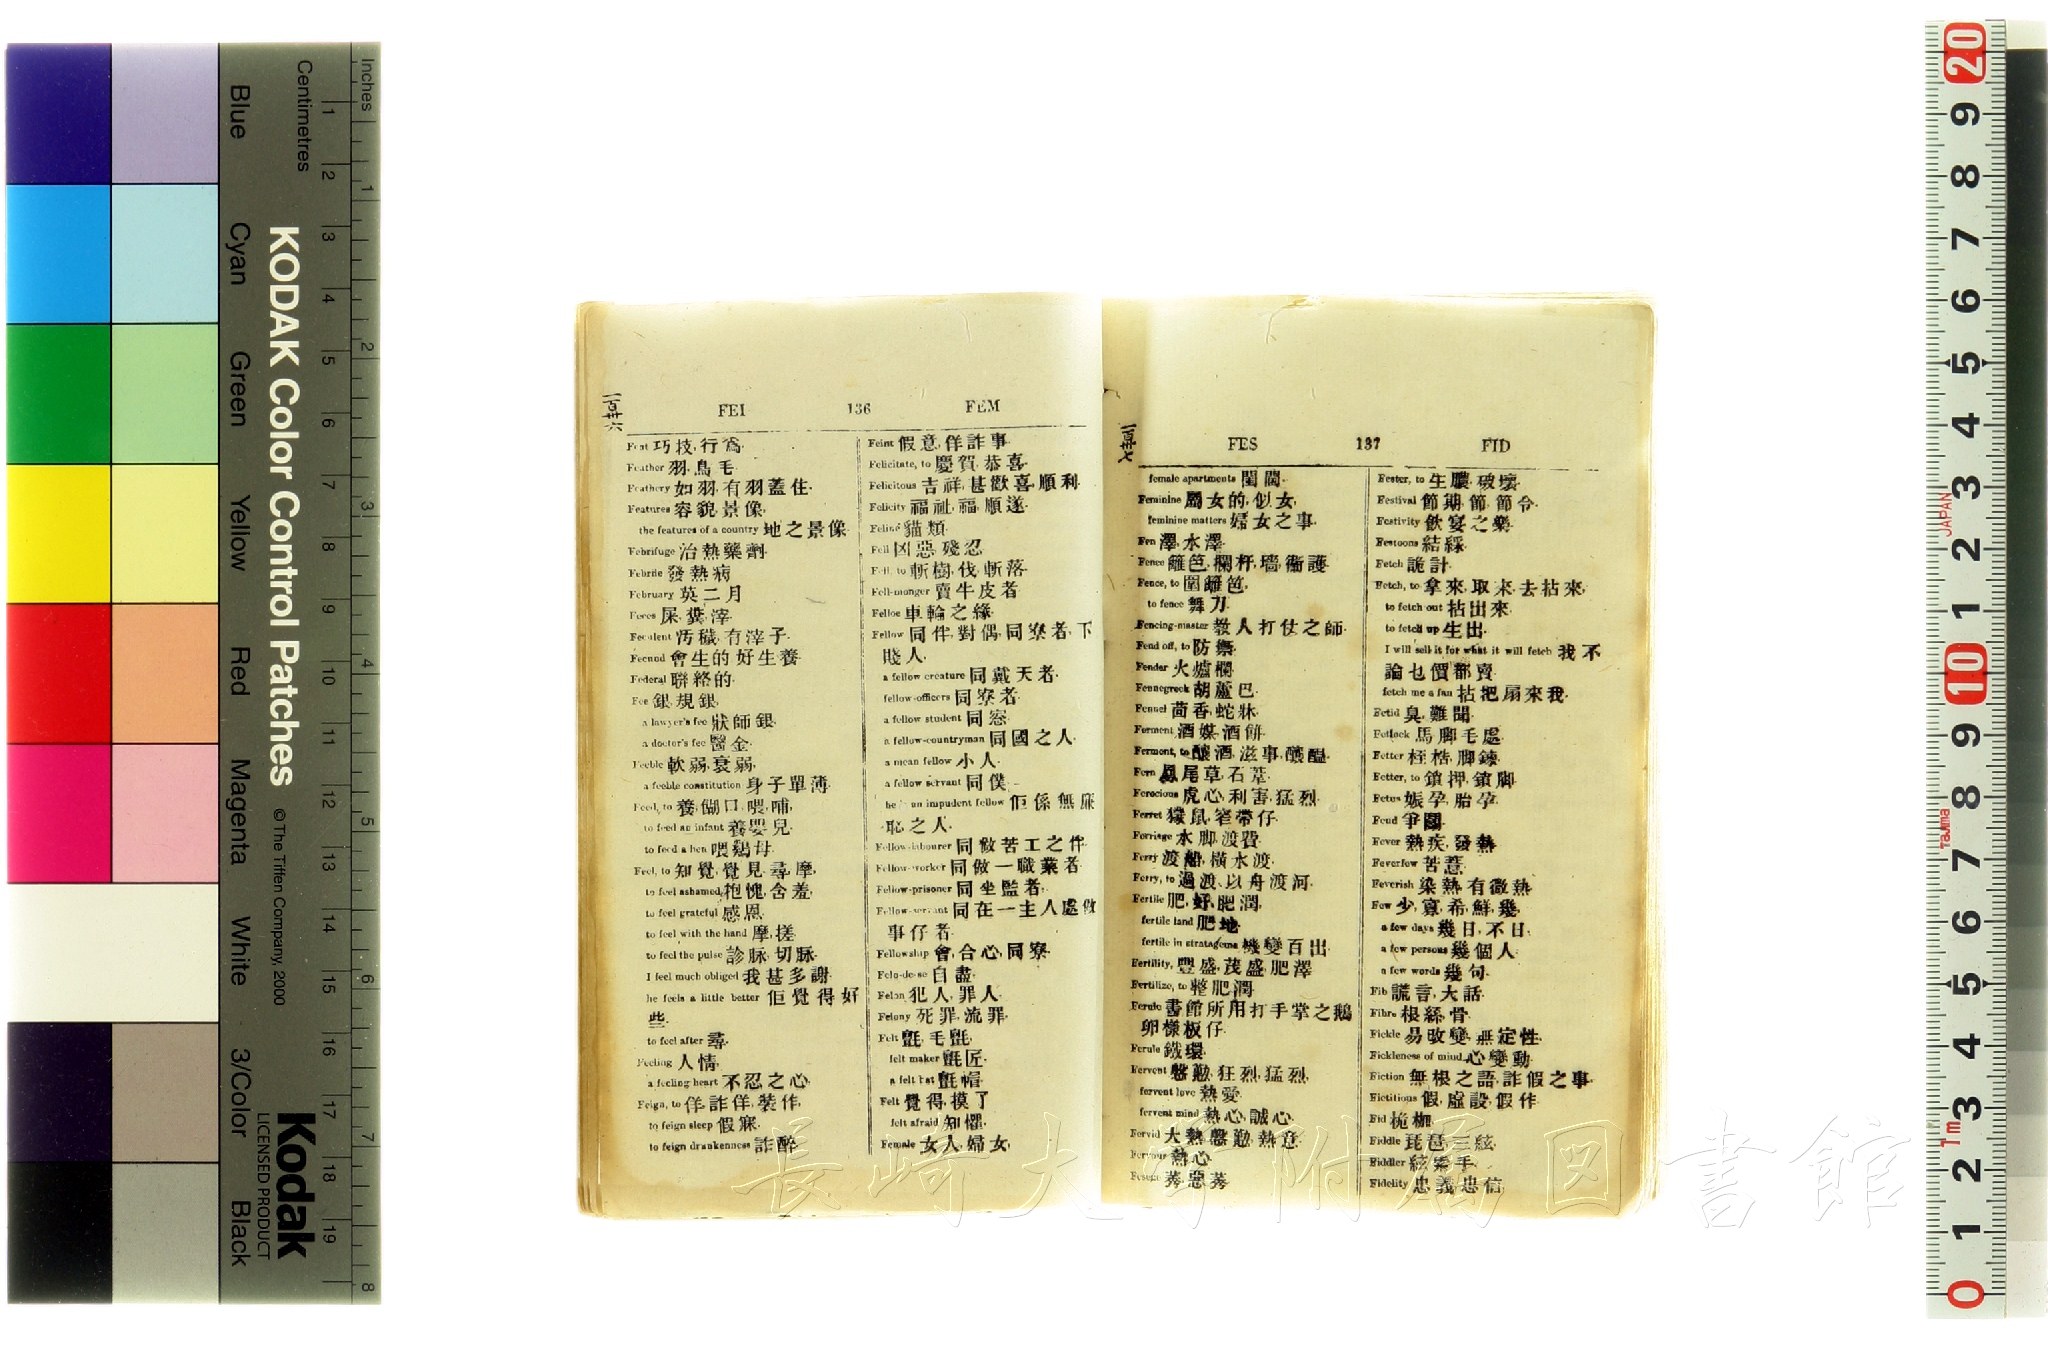 FEI 136 FEM
一百卅六
Feat 巧技, 行爲.
Feather 羽, 鳥毛.
Feathery 如羽, 有羽蓋住.
Features 容貌, 景像,
the features of a country 地之景像.
Febrifuge 治熱藥劑.
Febrile 發熱病
February 英二月
Feces 屎, 糞, 滓.
Feculent 汚穢, 有滓子.
Fecund 會生的, 好生養.
Federal 聯絡的.
Fee 銀, 規銀,
a lawyer's fee 狀師銀.
a doctor's fee 醫金.
Feeble 軟弱, 衰弱,
a feeble constitution 身子單薄.
Feed, to 養, 餬口, 喂, 哺,
to feed an infant 養嬰兒.
to feed a hen 喂鷄母.
Feel, to 知覺, 覺見, 尋摩,
to feel ashamed 抱愧, 含羞,
to feel grateful 感恩,
to feel with the hand 摩, 搓
to feel the pulse 診脉, 切脉.
I feel much obliged 我甚多謝.
he feels a little better 佢覺得好
些.
to feel after 尋.
Feeling 人情,
a feeling heart 不忍之心,
Feign, to 佯詐, 佯, 裝作,
to feign sleep 假寐.
to feign drunkenness 詐醉.
Feint 假意, 佯詐事.
Felicitate, to 慶賀, 恭喜.
Felicitous 吉祥, 甚歡喜, 順利.
Felicity 福祉, 福, 順遂.
Feline 貓類.
Fell 凶惡, 殘忍
Fell, to 斬樹, 伐, 斬落.
Fell-monger 賣牛皮者
Felloe 車輪之緣.
Fellow 同伴, 對偶, 同寮者, 下
賤人.
a fellow creature 同戴天者.
fellow-officers 同寮者.
a fellow student 同窓.
a fellow-countryman 同國之人.
a mean fellow 小人.
a fellow servant 同僕.
he is an impudent fellow 佢係無廉
恥之人.
Fellow-labourer 同做苦工之伴.
Fellow-worker 同做一職業者.
Fellow-prisoner 同坐監者.
Fellow-servant 同在一主人處做
事仔者.
Fellowship 會, 合心, 同寮.
Felo-de-se 自盡.
Felon 犯人, 罪人.
Felony 死罪, 流罪.
Felt 氈, 毛氈,
felt maker 氈匠.
a felt hat 氈帽.
Felt 覺得, 摸了
felt afraid 知懼.
Female 女人, 婦女,
FES 137 FID
一百卅七
female apartments 閨閫.
Feminine 屬女的, 似女,
feminine matters 婦女之事.
Fen 澤, 水澤.
Fence 籬笆, 欄杆, 墻, 衞護.
Fence, to 圍籬笆,
to fence 舞刀.
Fencing-master 敎人打仗之師.
Fend off, to 防禦.
Fender 火爐欄
Fennegreek 胡蘆巴.
Fennel 茴香, 蛇牀.
Ferment 酒媒, 酒餅.
Ferment, to 釀酒, 滋事, 醲醞.
Fern 鳳尾草, 石葦.
Ferocious 虎心, 利害, 猛烈.
Ferret 獴鼠, 窄帶仔.
Ferriage 水脚, 渡費.
Ferry 渡船, 橫水渡.
Ferry, to 過渡, 以舟渡河.
Fertile 肥, 好, 肥潤,
fertile land 肥地.
fertile in stratagems 機變百出.
Fertility, 豐盛, 茂盛, 肥澤
Fertilize, to 整肥潤
Ferule 書館所用打手掌之鵝
卵樣板仔.
Ferule 鐵環.
Fervent 慇懃, 狂烈, 猛烈,
fervent love 熱愛.
fervent mind 熱心, 誠心.
Fervid 大熱, 慇懃, 熱意.
Fervour 熱心.
Fester, to 生膿, 破壞.
Festival 節期, 節, 節令.
Festivity 飮宴之樂.
Festoons 結綵.
Fetch 詭計.
Fetch, to 拿來, 取來, 去拈來,
to fetch out 拈出來.
to fetch up 生出.
I will sell it for what it will fetch 我不
論乜價都賣.
fetch me a fan 拈把扇來我.
Fetid 臭, 難聞.
Fetlock 馬脚毛處.
Fetter 桎梏, 脚鍊.
Fetter, to 鎖押, 鎖脚.
Fetus 娠孕, 胎孕.
Feud 爭鬭.
Fever 熱疾, 發熱.
Feverfew 苦薏.
Feverish 染熱, 有微熱.
Few 少, 寡, 希, 鮮, 幾,
a few days 幾日, 不日.
a few persons 幾個人.
a few words 幾句.
Fib 謊言, 大話.
Fibre 根, 絲, 骨.
Fickle 易改變, 無定性.
Fickleness of mind 心變動
Fiction 無根之語, 詐假之事.
Fictitious 假, 虛設, 假作.
Fid 桅栅.
Fiddle 琵琶, 三絃.
Fiddler 絃索手.
Fidelity 忠義, 忠信.
長崎大学附属図書館
Inches
Centimetres
KODAK Color Control Patches
© The Tiffen Company, 2000
Kodak
LICENSED PRODUCT
Blue Cyan Green Yellow Red Magenta White 3/Color Black
1 2 3 4 5 6 7 8 9 10 11 12 13 14 15 16 17 18 19
1 2 3 4 5 6 7 8
20 9 8 7 6 5 4 3 2 1 10 9 8 7 6 5 4 3 2 1 0
JAPAN
Tajima
1m